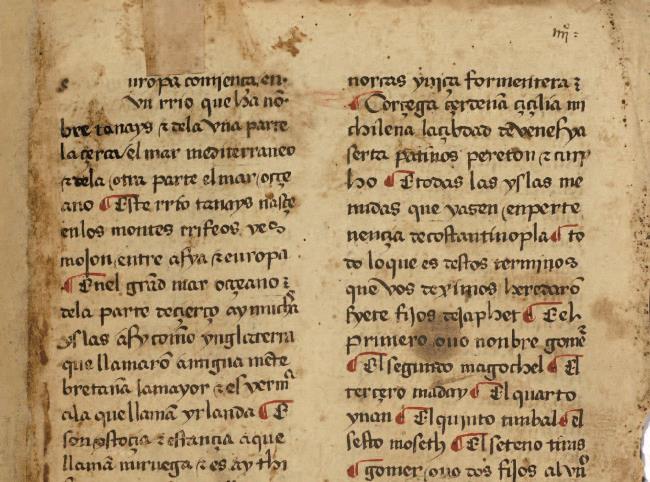 iiijº
e uropa comiença en
vn rrio que ha nō
bre tanays ⁊ dela vna parte
la çerca el mar mediterraneo
⁊ dela otra parte el mar oçe
ano ¶ Este rrio tanays nasçe
en los montes rrifeos ⁊ es
mojon entre asya ⁊ europa
¶ En el grād mar oçeano ⁊
dela parte deçierço ay muchas
yslas asy como ynglaterra
que llamarō antigua mēte
bretaña la mayor ⁊ es
ala que llamā yrlanda ¶ E
son ⁊ a que
llamā nuruega ⁊ es ay thi
norcas yuiça formentera ⁊
¶ Corçega çerdeña çiçilia mi
chilena la çibdad de venesya
serta patinos
ho ¶ E todas las yslas me
nudas que yasen en perte
nençia de costantinopla ¶ to
do lo que es destos terminos
que vos deximos heredarō
syete fijos de japhet ¶ El
primero ouo nonbre gomer
¶ El segundo magochel ¶ El
terçero maday ¶ El quarto
ynan ¶ El quinto tunbal ¶ el
sesto moseth ¶ El seteno tiras
¶ gomer ouo dos fijos al vnº